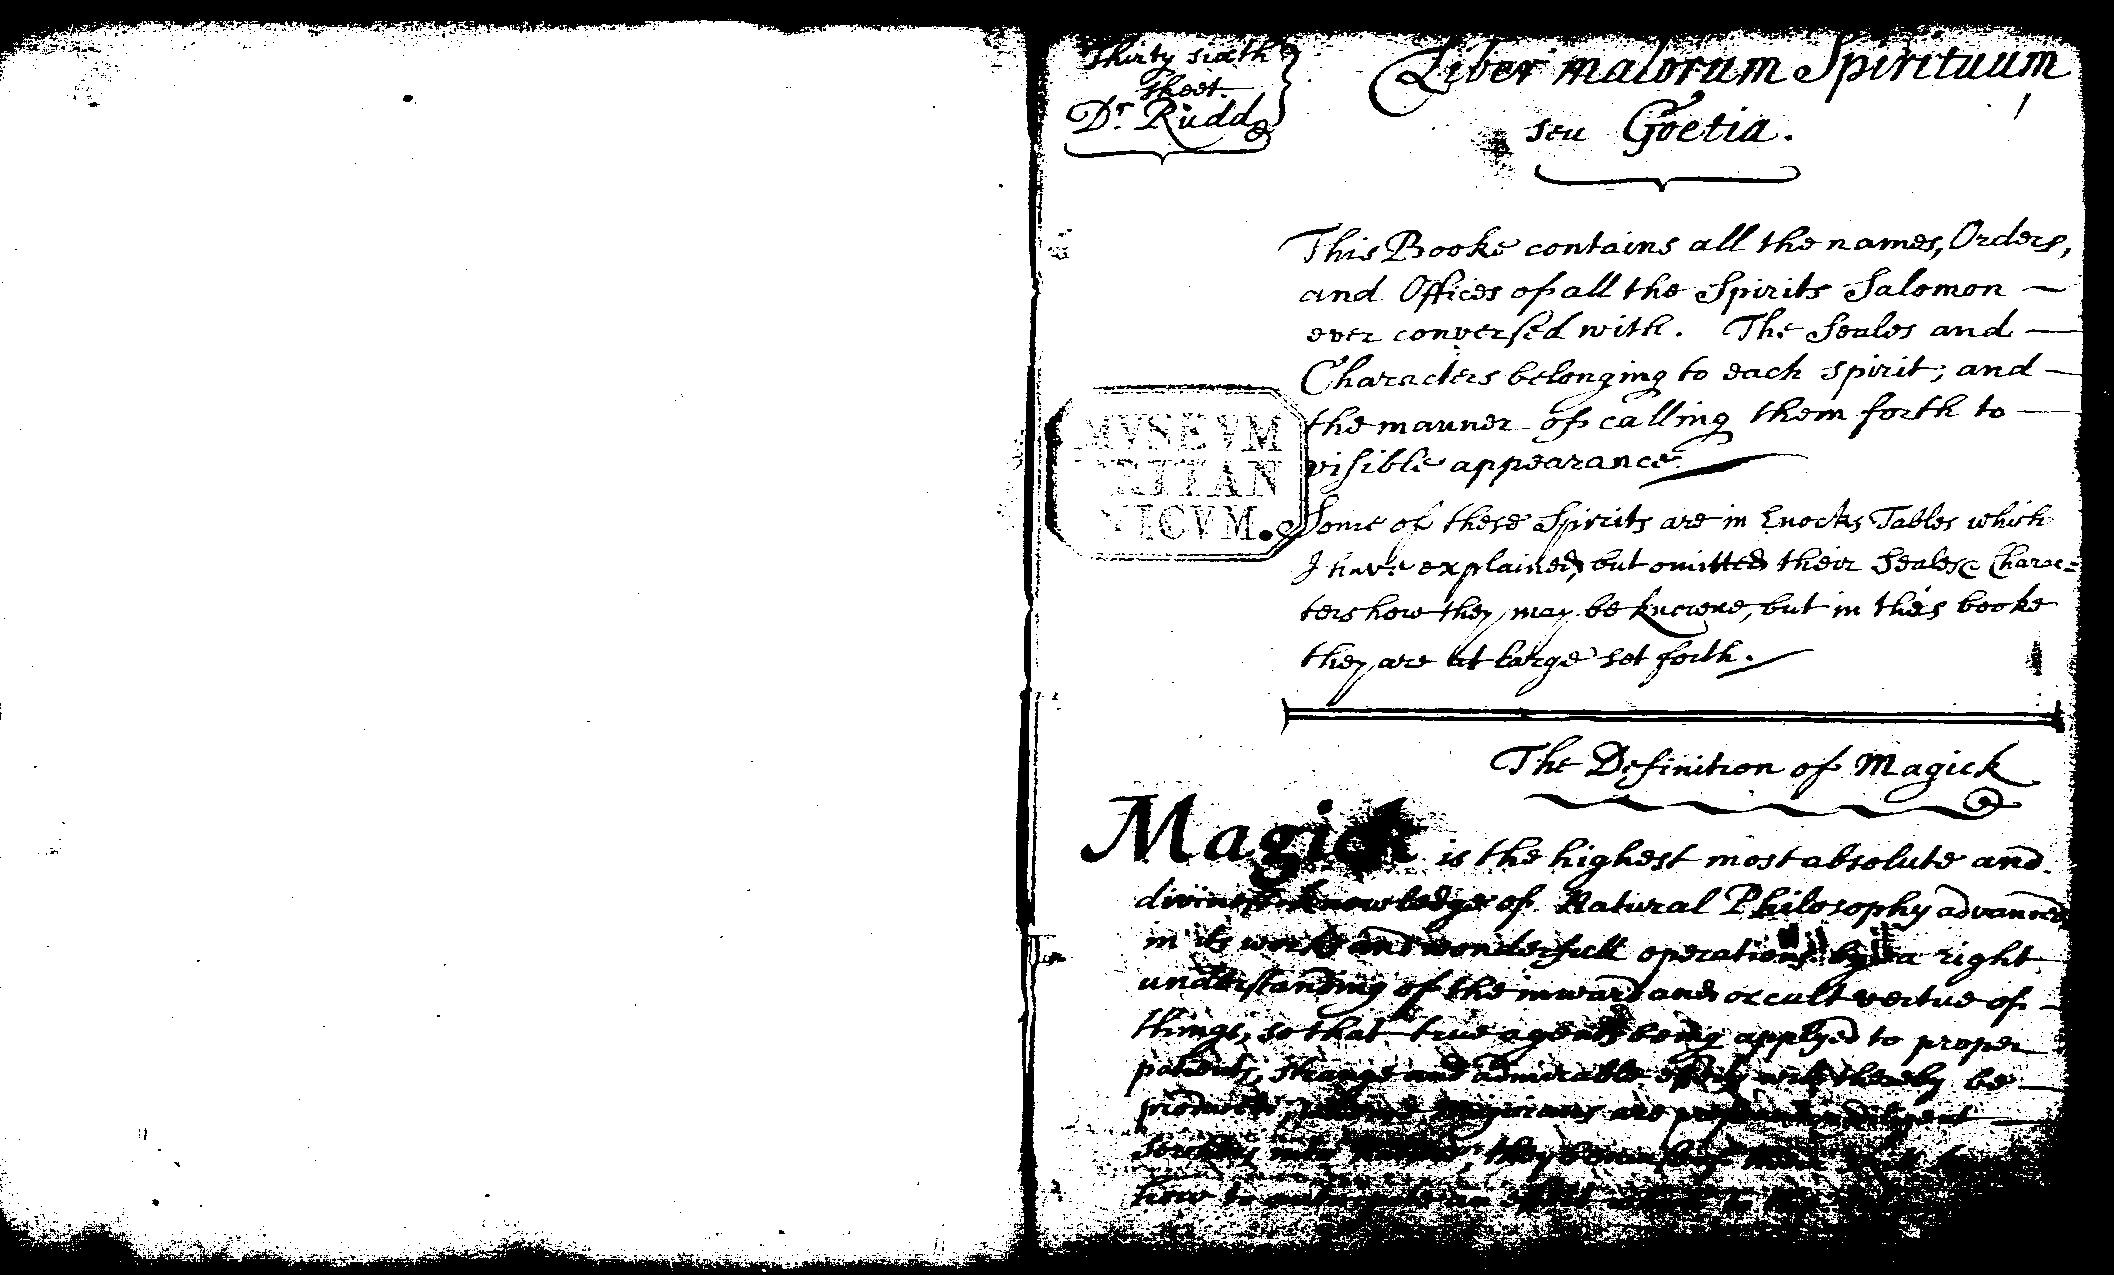 Thirty sixth
sheet.
Dr. Rudd
Liber malorum Spirituum
seu Goetia.
This Booke contains all the names, Orders,
and Offices of all the Spirits Salomon
ever conversed with. The Seales and
Characters belonging to each spirit; and
the manner of calling them forth to
visible appearance
MVSEVM
BRITAN
NICVM.
Some of these Spirits are in Enocks Tables which
I have explained, but omitted their Seales & Charac=
ters how they may be knowne, but in this booke
they are at large set forth.
The Definition of Magick
Magick is the highest most absolute and
divinest knowledge of Natural Philosophy advanced
in its works and wonderfull operations by a right
understanding of the inward and occult vertue of
things, so that true agents being applyed to proper
patients, strange and admirable effects will thereby be
produced Magicians are profound and diligent
they
how to